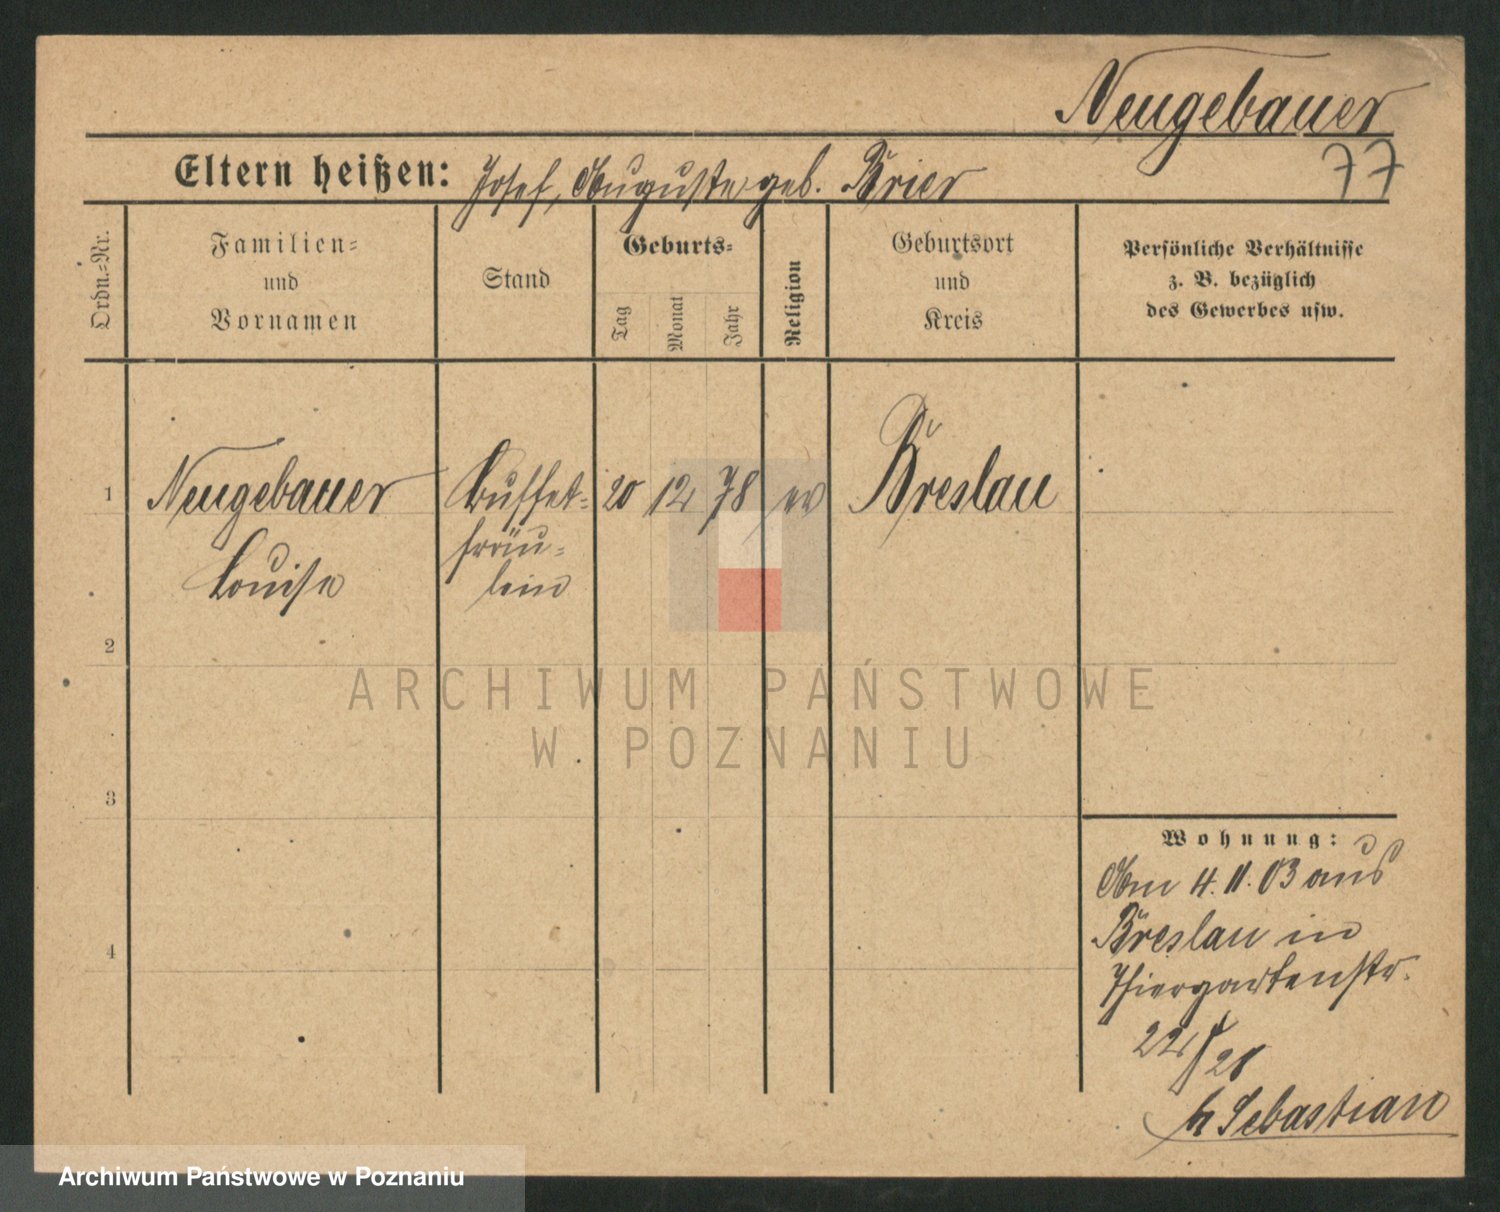 Neugebauer
77
Eltern heißen: Josef, Auguste geb. Brier
Ordn.=Nr.
Familien=
und
Vornamen
Stand
Geburts=
Tag
Monat
Jahr
Religion
Geburtsort
und
Kreis
Persönliche Verhältnisse
z. B. bezüglich
des Gewerbes usw.
1 Neugebauer Buffet= 20 12 78 ev Breslau
Louise
fräu=
lein
2
3
4
Wohnung:
Am 4. 11. 03 aus
Breslau in
Thiergartenstr.
22
b Sebastian
ARCHIWUM PAŃSTWOWE
W POZNANIU
Archiwum Państwowe w Poznaniu